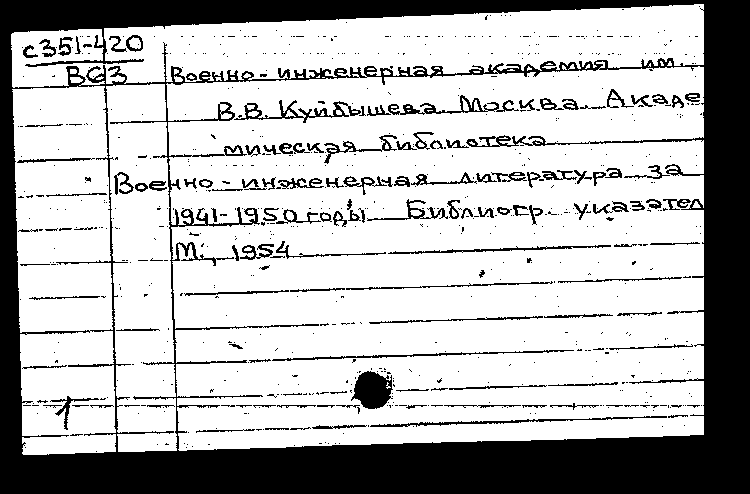 с351-420
В63
Военно-инженерная академия им.
В.В. Куйбышева. Москва. Акаде
мическая библиотека
Военно-инженерная литература за
1941-1950 годы. Библиогр. указател
М., 1954
1